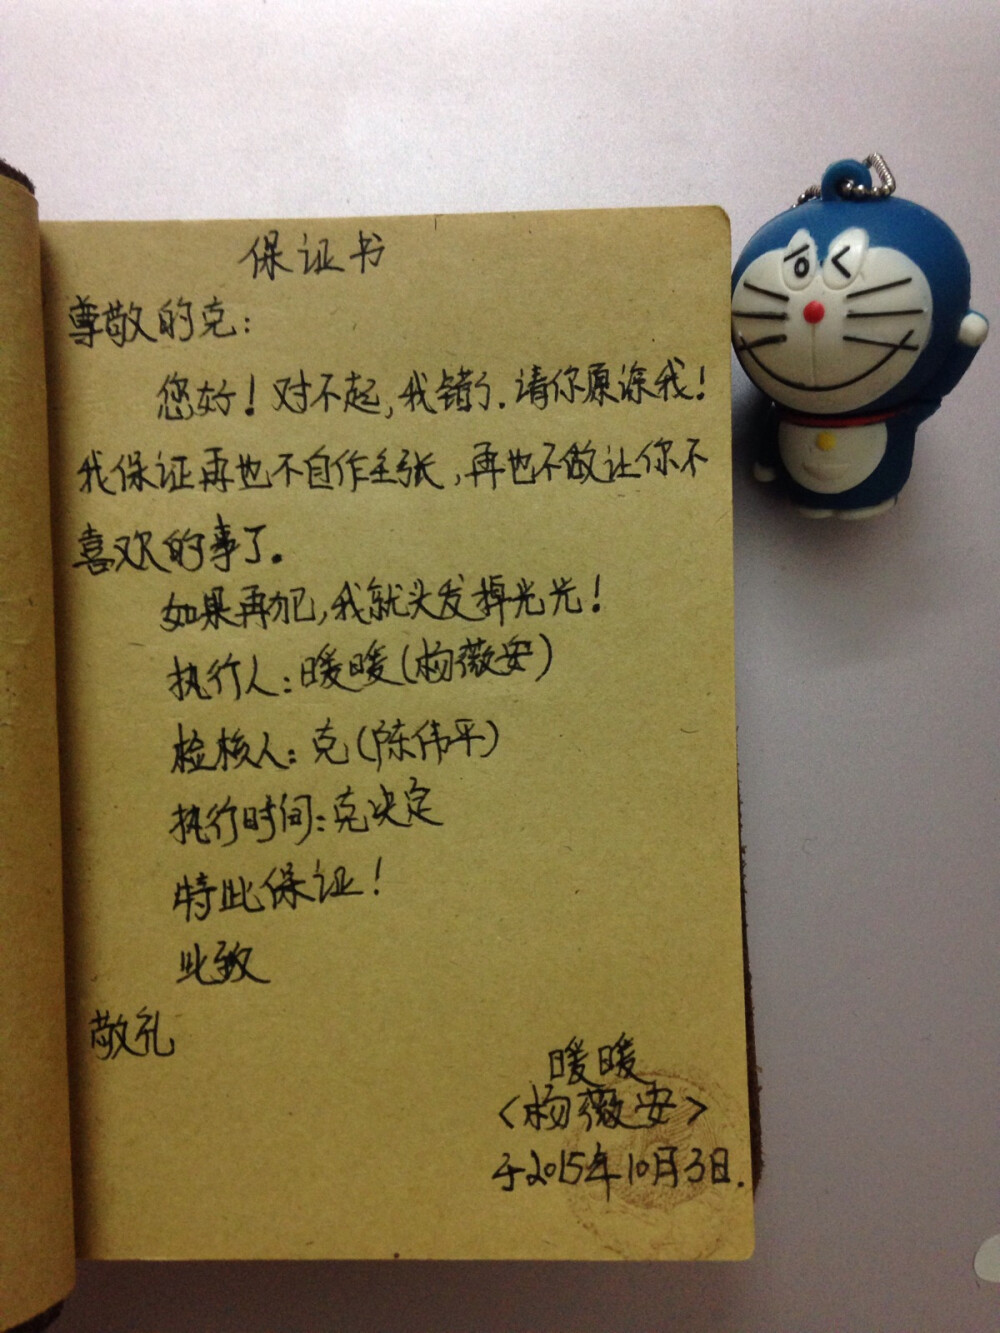 保证书
尊敬的克：
您好！对不起，我错了．请你原谅我！
我保证再也不自作主张，再也不做让你不
喜欢的事了。
如果再犯，我就头发掉光光！
执行人：暖暖（杨薇安）
检核人：克（陈伟平）
执行时间：克决定
特此保证！
此致
敬礼
暖暖
<杨薇安>
于2015年10月3日.